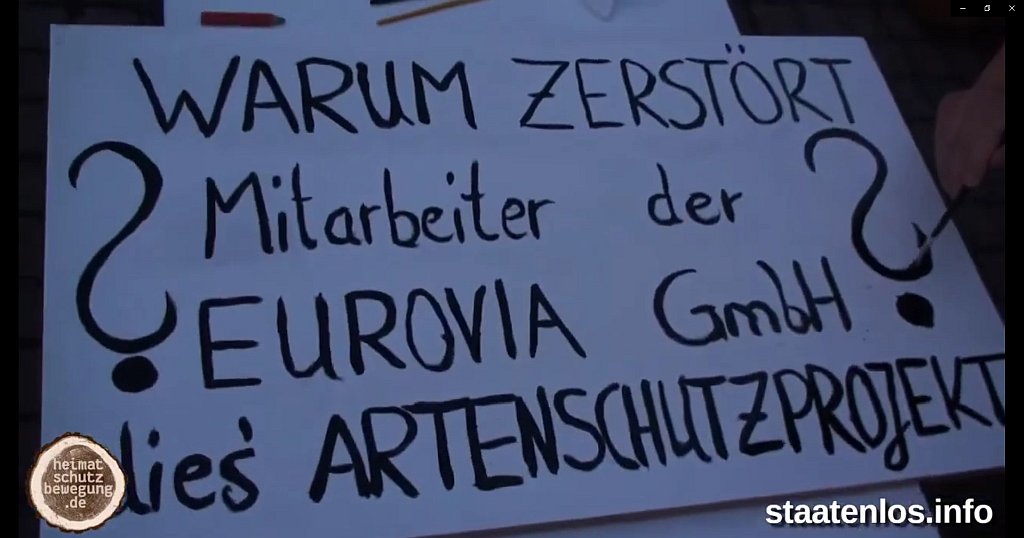 WARUM ZERSTÖRT
? Mitarbeiter der ?
EUROVIA GmbH
dies' ARTENSCHUTZPROJEKT
heimat
schutz
bewegung
.de
staatenlos.info